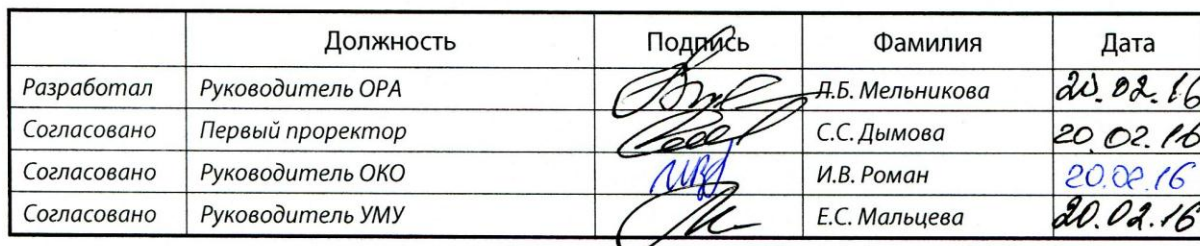 Должность Подпись Фамилия Дата
Разработал Руководитель ОРА Л.Б. Мельникова 20.02.16
Согласовано Первый проректор С.С. Дымова 20.02.16
Согласовано Руководитель ОКО И.В. Роман 20.02.16
Согласовано Руководитель УМУ Е.С. Мальцева 20.02.16